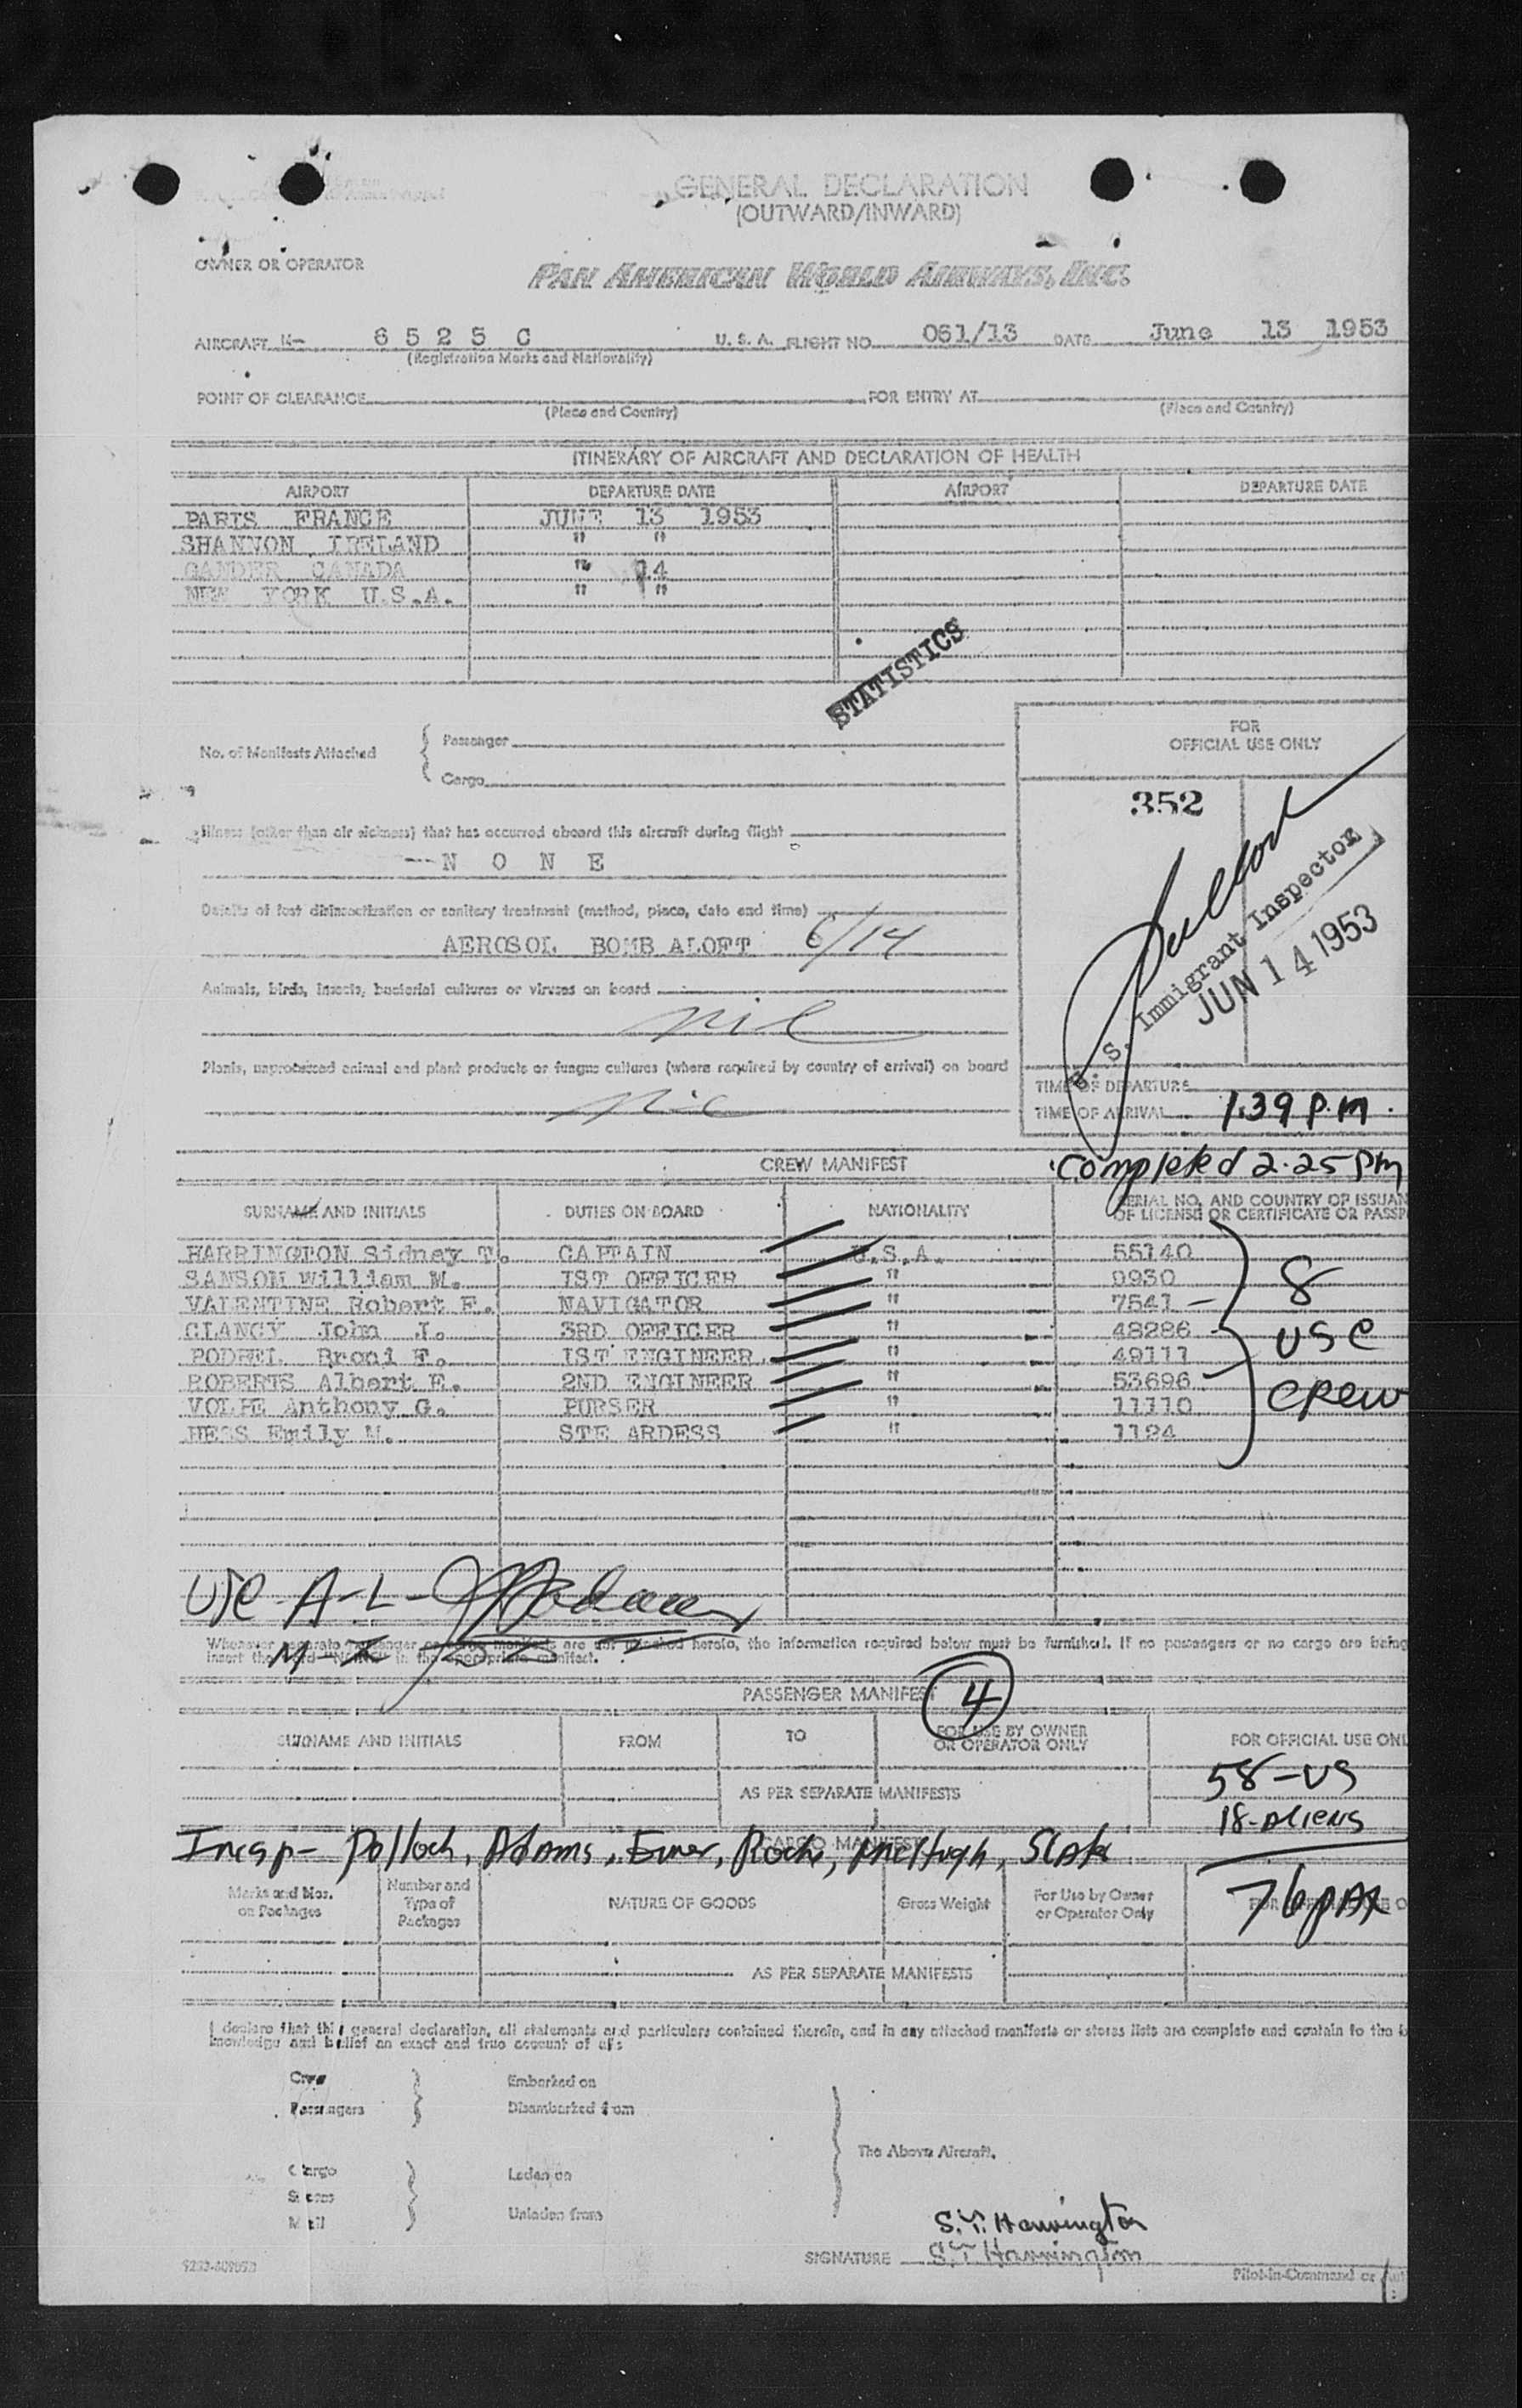 GENERAL DECLARATION
(OUTWARD/INWARD)
OWNER OR OPERATOR
PAN AMERICAN WORLD AIRWAYS, INC.
AIRCRAFT N- 6 5 2 5 C U. S. A. FLIGHT NO. 061/13 DATE June 13 1953
(Registration Marks and Nationality)
POINT OF CLEARANCE FOR ENTRY AT
(Place and Country) (Place and Country)
ITINERARY OF AIRCRAFT AND DECLARATION OF HEALTH
AIRPORT DEPARTURE DATE AIRPORT DEPARTURE DATE
PARIS FRANCE JUNE 13 1953
SHANNON IRELAND " "
GANDER CANADA " 14
NEW YORK U.S.A. " "
STATISTICS
No. of Manifests Attached { Passenger
Cargo
FOR
OFFICIAL USE ONLY
352
Illness (other than air sickness) that has occurred aboard this aircraft during flight
N O N E
Details of last disinsectization or sanitary treatment (method, place, date and time)
AEROSOL BOMB ALOFT 6/14
Animals, birds, insects, bacterial cultures or viruses on board
nil
Plants, unprocessed animal and plant products or fungus cultures (where required by country of arrival) on board
nil
U. S. Immigrant Inspector
JUN 14 1953
TIME OF DEPARTURE
TIME OF ARRIVAL 1.39 P.M.
Completed 2.25 PM
CREW MANIFEST
SURNAME AND INITIALS DUTIES ON BOARD NATIONALITY SERIAL NO. AND COUNTRY OF ISSUAN
OF LICENSE OR CERTIFICATE OR PASSP
HARRINGTON Sidney T. CAPTAIN U.S.A. 55140
SANSOM William M. IST OFFICER " 9930
VALENTINE Robert F. NAVIGATOR " 7541
CLANCY John J. 3RD OFFICER " 48286
PODBEL Broni F. IST ENGINEER " 49111
ROBERTS Albert E. 2ND ENGINEER " 53696
VOLPE Anthony G. PURSER " 11110
HESS Emily M. STE ARDESS " 1124
8
USC
CREW
USC A-L-
Whenever separate passenger or cargo manifests are not attached hereto, the information required below must be furnished. If no passengers or no cargo are being
insert the word "NONE" in the appropriate manifest.
PASSENGER MANIFEST
4
SURNAME AND INITIALS FROM TO FOR USE BY OWNER
OR OPERATOR ONLY FOR OFFICIAL USE ONL
AS PER SEPARATE MANIFESTS
58-US
18-Aliens
76 pax
Insp- Pollock, Adams,
CARGO MANIFEST
Marks and Nos.
on Packages
Number and
Type of
Packages
NATURE OF GOODS Gross Weight For Use by Owner
or Operator Only
AS PER SEPARATE MANIFESTS
I declare that this general declaration, all statements and particulars contained therein, and in any attached manifests or stores lists are complete and contain to the
knowledge and belief an exact and true account of all:
Crew
Passengers
Embarked on
Disembarked from
The Above Aircraft.
Cargo
Stores
Mail
Laden on
Unladen from
S.T. Harrington
SIGNATURE S.T Harrington
Pilot-in-Command or